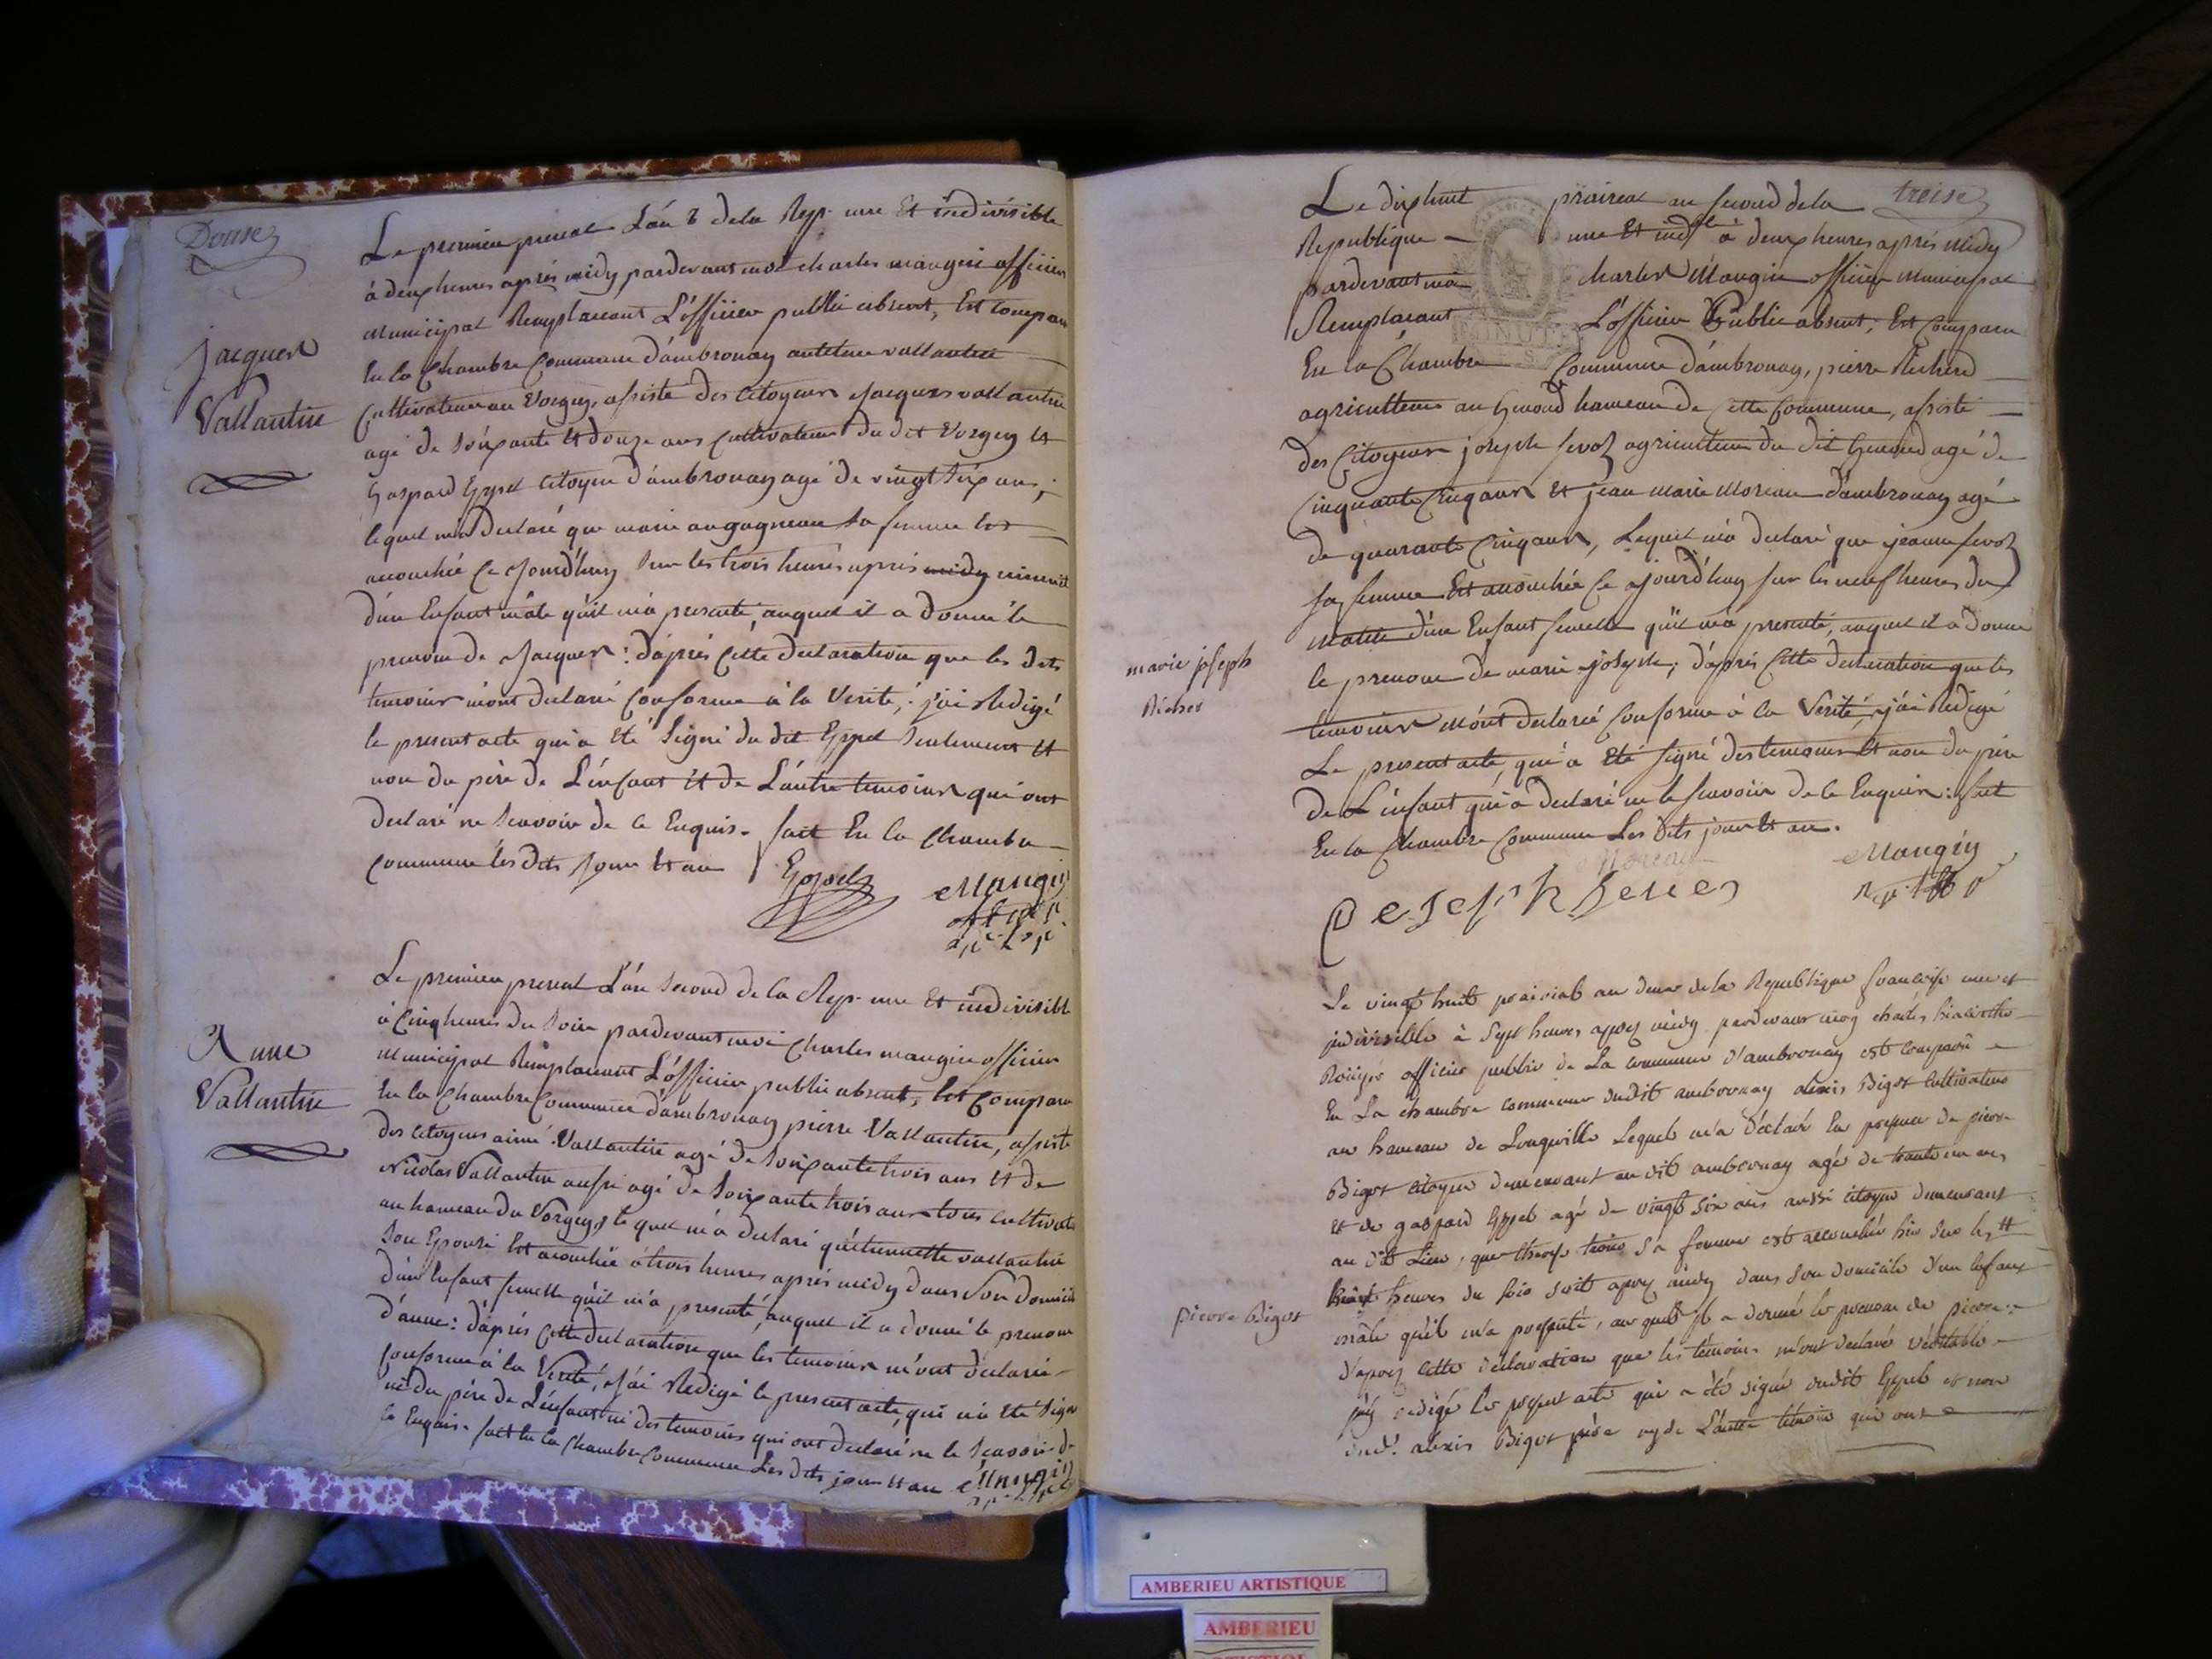 Douse
Le premier prerial L'an 2 dela Rep. une Et indivisible
à deux heures après midy pardevant moi charles mangin officier
municipal Remplacant L'officier public absent, Est comparu
En la Chambre Commune d'ambronay vallantin
Cultivateur au Vorgey, assisté des Citoyens Jacques vallantin
agé de soixante Et douze ans Cultivateur du dit Vorgey Et
gaspard Gypel Citoyen d'ambronay agé de vingt six ans,
lequel m'a declaré que marie sa femme Est
accouchée Ce Jourd'huy sur les trois heures après midy minuit
d'un Enfant mâle qu'il m'a presenté, auquel il a donné le
prenom de Jacques : d'après Cette declaration que les dits
temoins m'ont declaré Conforme à la Verité, j'ai Redigé
le present acte qui a Eté signé du dit Gypel seulement Et
non du père de L'enfant Et de L'autre temoins qui ont
declaré ne scavoir de ce Enquis. fait En la Chambre
Commune les dits Jour Et an
Gypel
Mangin
Jacques
Vallantin
Le premier prerial L'an second de la Rep. une Et indivisible
à Cinq heures du soir pardevant moi Charles mangin officier
Municipal Remplacant L'officier public absent, Est Comparu
En la Chambre Commune d'ambronay pierre Vallantin, assisté
des Citoyens aimé Vallantin agé de soixante trois ans Et de
Nicolas Vallantin aussi agé de soixante trois ans tous cultivate
au hameau du Vorgey, le quel m'a declaré qu'etiennette vallantin
son Epouse Est accouchée à trois heures après midy dans son domicile
d'un Enfant femelle qu'il m'a presenté, auquel il a donné le prenom
d'anne : d'après Cette declaration que les temoins m'ont declaré
Conforme à la Verité, j'ai Redigé le present acte, qui n'a Eté signé
ni du père de L'enfant ni des temoins qui ont declaré ne le scavoir de
ce Enquis. fait En la Chambre Commune Les dits jour Et an Mangin
Anne
Vallantin
treise
Le dix huit prairial an second de la
Republique une Et indle à deux heures après midy
pardevant moi Charles Mangin officier Municipal
Remplacant L'officier Public absent, Est Comparu
En la Chambre Commune d'ambronay, pierre Richerd
agriculteur au Genoud hameau de Cette Commune, assisté
des Citoyens joseph fevoz agriculteur du dit Genoud agé de
Cinquante Cinq ans Et jean marie Moreau d'ambronay agé
de quarante Cinq ans, Lequel m'a declaré que jeanne fevoz
sa femme Est accouchée Ce ajourd'huy sur les neuf heures du
matin d'un Enfant femelle qu'il m'a presenté, auquel il a donné
le prenom de marie joseph ; d'après Cette declaration que les
temoins m'ont declaré Conforme à la Verité, j'ai Redigé
Le present acte, qui a Eté signé des temoins Et non du père
de L'enfant qui a declaré ne le scavoir de ce Enquis : fait
En la Chambre Commune Les dits jour Et an.
Moreau
Mangin
marie joseph
Richer
Le vingt huit prairial an deux de la Republique francaise une et
indivisible à sept heures après midy pardevant moy
officier public de La commune d'ambronay est comparû
En La chambre commune dudit ambronay alexis Bigot Cultivateur
au hameau de Longeville Lequel m'a déclaré En présence de pierre
Bigot citoyen demeurant au dit ambronay agé de trante un ans
et de gaspard Gypel agé de vingt six ans aussi citoyen demeurant
au dit Lieu, que sa femme est accouchée hier sur les
huit heures du soir soit après midy dans son domicile d'un Enfant
mâle qu'il m'a présenté, au quel il a donné le prenom de pierre
d'après cette déclaration que les témoins m'ont déclaré véritable
j'ay rédigé le présent acte qui a été signé dudit Gypel et non
dud. alexis Bigot père ny de L'autre témoin qui ont
pierre Bigot
AMBERIEU ARTISTIQUE
AMBERIEU
ARTISTIQUE